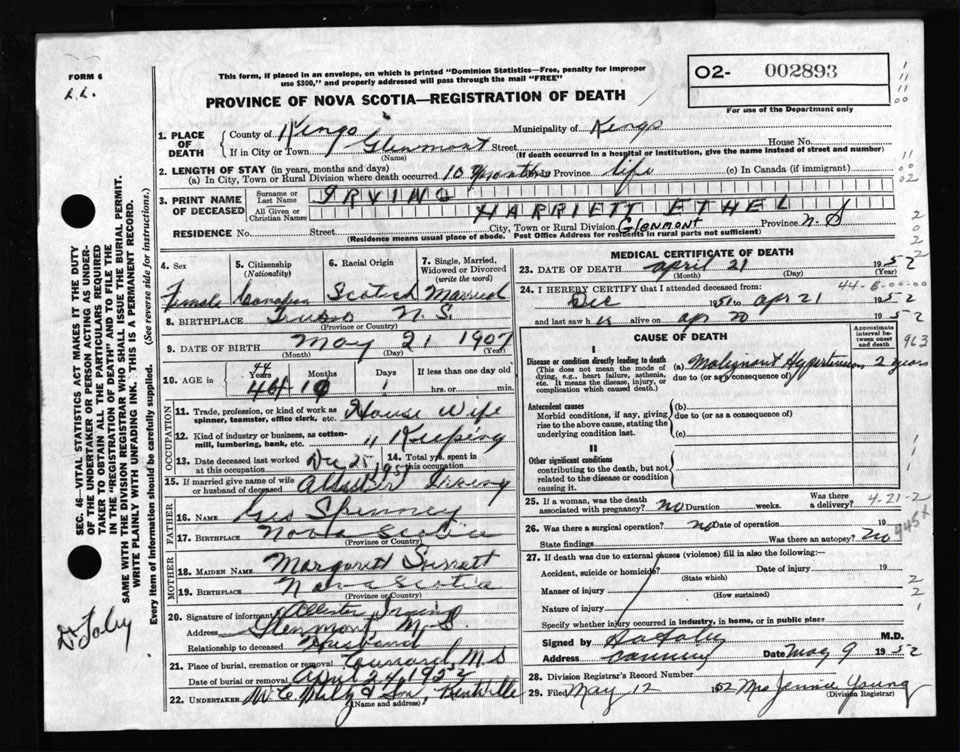 FORM 6
This form, if placed in an envelope, on which is printed "Dominion Statistics—Free, penalty for improper
use $300," and properly addressed will pass through the mail "FREE"
PROVINCE OF NOVA SCOTIA—REGISTRATION OF DEATH
02- 002893
For use of the Department only
1. PLACE OF DEATH
County of Kings Municipality of Kings
If in City or Town Glenmont Street House No.
(Name) (If death occurred in a hospital or institution, give the name instead of street and number)
2. LENGTH OF STAY (in years, months and days)
(a) In City, Town or Rural Division where death occurred 10 Months Province life (c) In Canada (if immigrant)
3. PRINT NAME OF DECEASED
Surname or Last Name IRVING
All Given or Christian Names HARRIETT ETHEL
RESIDENCE No. Street City, Town or Rural Division Glenmont Province N.S
(Residence means usual place of abode. Post Office Address for residents in rural parts not sufficient)
4. Sex Female
5. Citizenship (Nationality) Canadian
6. Racial Origin Scotch
7. Single, Married, Widowed or Divorced (write the word) Married
8. BIRTHPLACE Truro N.S.
(Province or Country)
9. DATE OF BIRTH May 21 1907
(Month) (Day) (Year)
10. AGE in Years Months Days If less than one day old
44
44 1 hrs. or min.
OCCUPATION
11. Trade, profession, or kind of work as spinner, teamster, office clerk, etc. House Wife
12. Kind of industry or business, as cotton-mill, lumbering, bank, etc. " Keeping
13. Date deceased last worked at this occupation Dec 25 1951
14. Total yrs. spent in this occupation
15. If married give name of wife or husband of deceased Allister Irving
FATHER
16. NAME Geo Spinney
17. BIRTHPLACE Nova Scotia
(Province or Country)
MOTHER
18. MAIDEN NAME Margarett
19. BIRTHPLACE Nova Scotia
(Province or Country)
20. Signature of informant Allister Irving
Address Glenmont N.S.
Relationship to deceased Husband
21. Place of burial, cremation or removal N.S
Date of burial or removal April 24, 195
22. UNDERTAKER & Son, Kentville
(Name and address)
MEDICAL CERTIFICATE OF DEATH
23. DATE OF DEATH April 21 1952
(Month) (Day) (Year)
44-B-00-00
24. I HEREBY CERTIFY that I attended deceased from:
Dec 1951 to Apr 21 1952
and last saw h alive on Apr 20 1952
CAUSE OF DEATH
Approximate interval between onset and death
963
I
Disease or condition directly leading to death
(This does not mean the mode of dying, e.g., heart failure, asthenia, etc. It means the disease, injury, or complication which caused death.)
(a) Malignant Hypertension 2 years
due to (or as consequence of)
Antecedent causes
Morbid conditions, if any, giving rise to the above cause, stating the underlying condition last.
(b)
due to (or as a consequence of)
(c)
II
Other significant conditions
contributing to the death, but not related to the disease or condition causing it.
25. If a woman, was the death associated with pregnancy? no Duration weeks. Was there a delivery?
4-21-2
26. Was there a surgical operation? no Date of operation 19
State findings Was there an autopsy? no
445+
27. If death was due to external causes (violence) fill in also the following:—
Accident, suicide or homicide? Date of injury 19
(State which)
Manner of injury
(How sustained)
Nature of injury
Specify whether injury occurred in industry, in home, or in public place
Signed by M.D.
Address Canning Date May 9 1952
28. Division Registrar's Record Number
29. Filed May 12 1952 Mrs Jennie Young
(Division Registrar)
SEC. 46—VITAL STATISTICS ACT MAKES IT THE DUTY
OF THE UNDERTAKER OR PERSON ACTING AS UNDER-
TAKER TO OBTAIN ALL THE PARTICULARS REQUIRED
IN THE "REGISTRATION OF DEATH" AND TO FILE THE
SAME WITH THE DIVISION REGISTRAR WHO SHALL ISSUE THE BURIAL PERMIT.
WRITE PLAINLY WITH UNFADING INK. THIS IS A PERMANENT RECORD.
Every item of Information should be carefully supplied. (See reverse side for instructions.)
Dr Foley